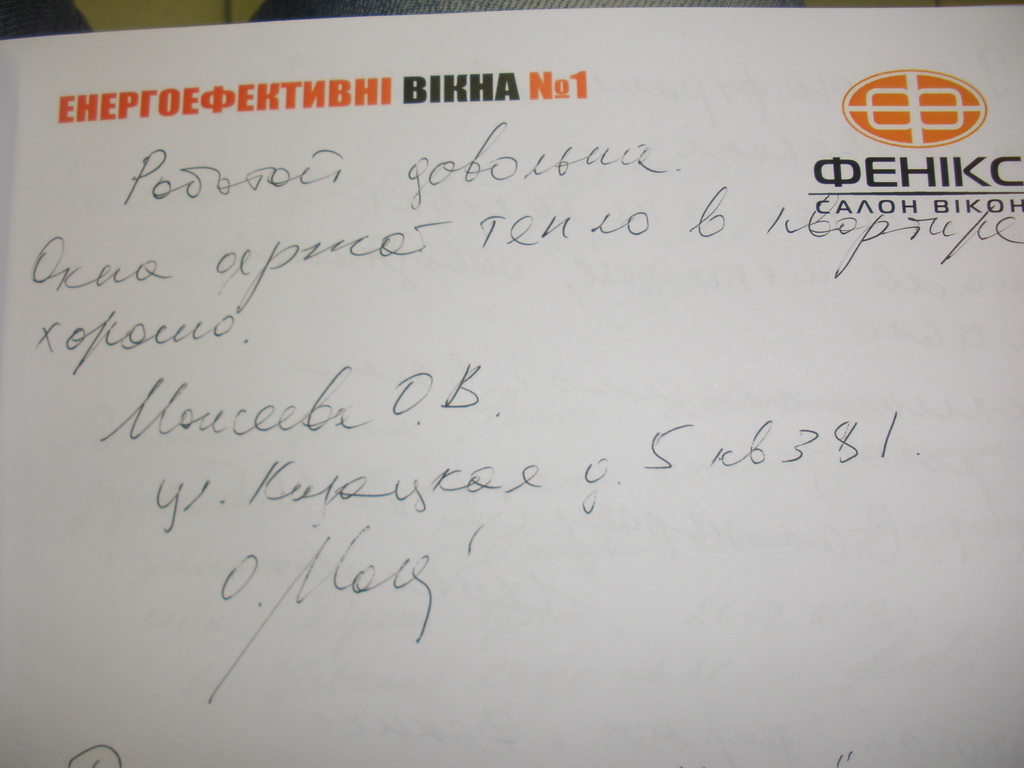 ЕНЕРГОЕФЕКТИВНІ ВІКНА №1
ФЕНІКС
САЛОН ВІКОН
Работой довольна.
Окна держат тепло в квартире
хорошо.
Моисеева О.В.
ул. д. 5 кв 381.